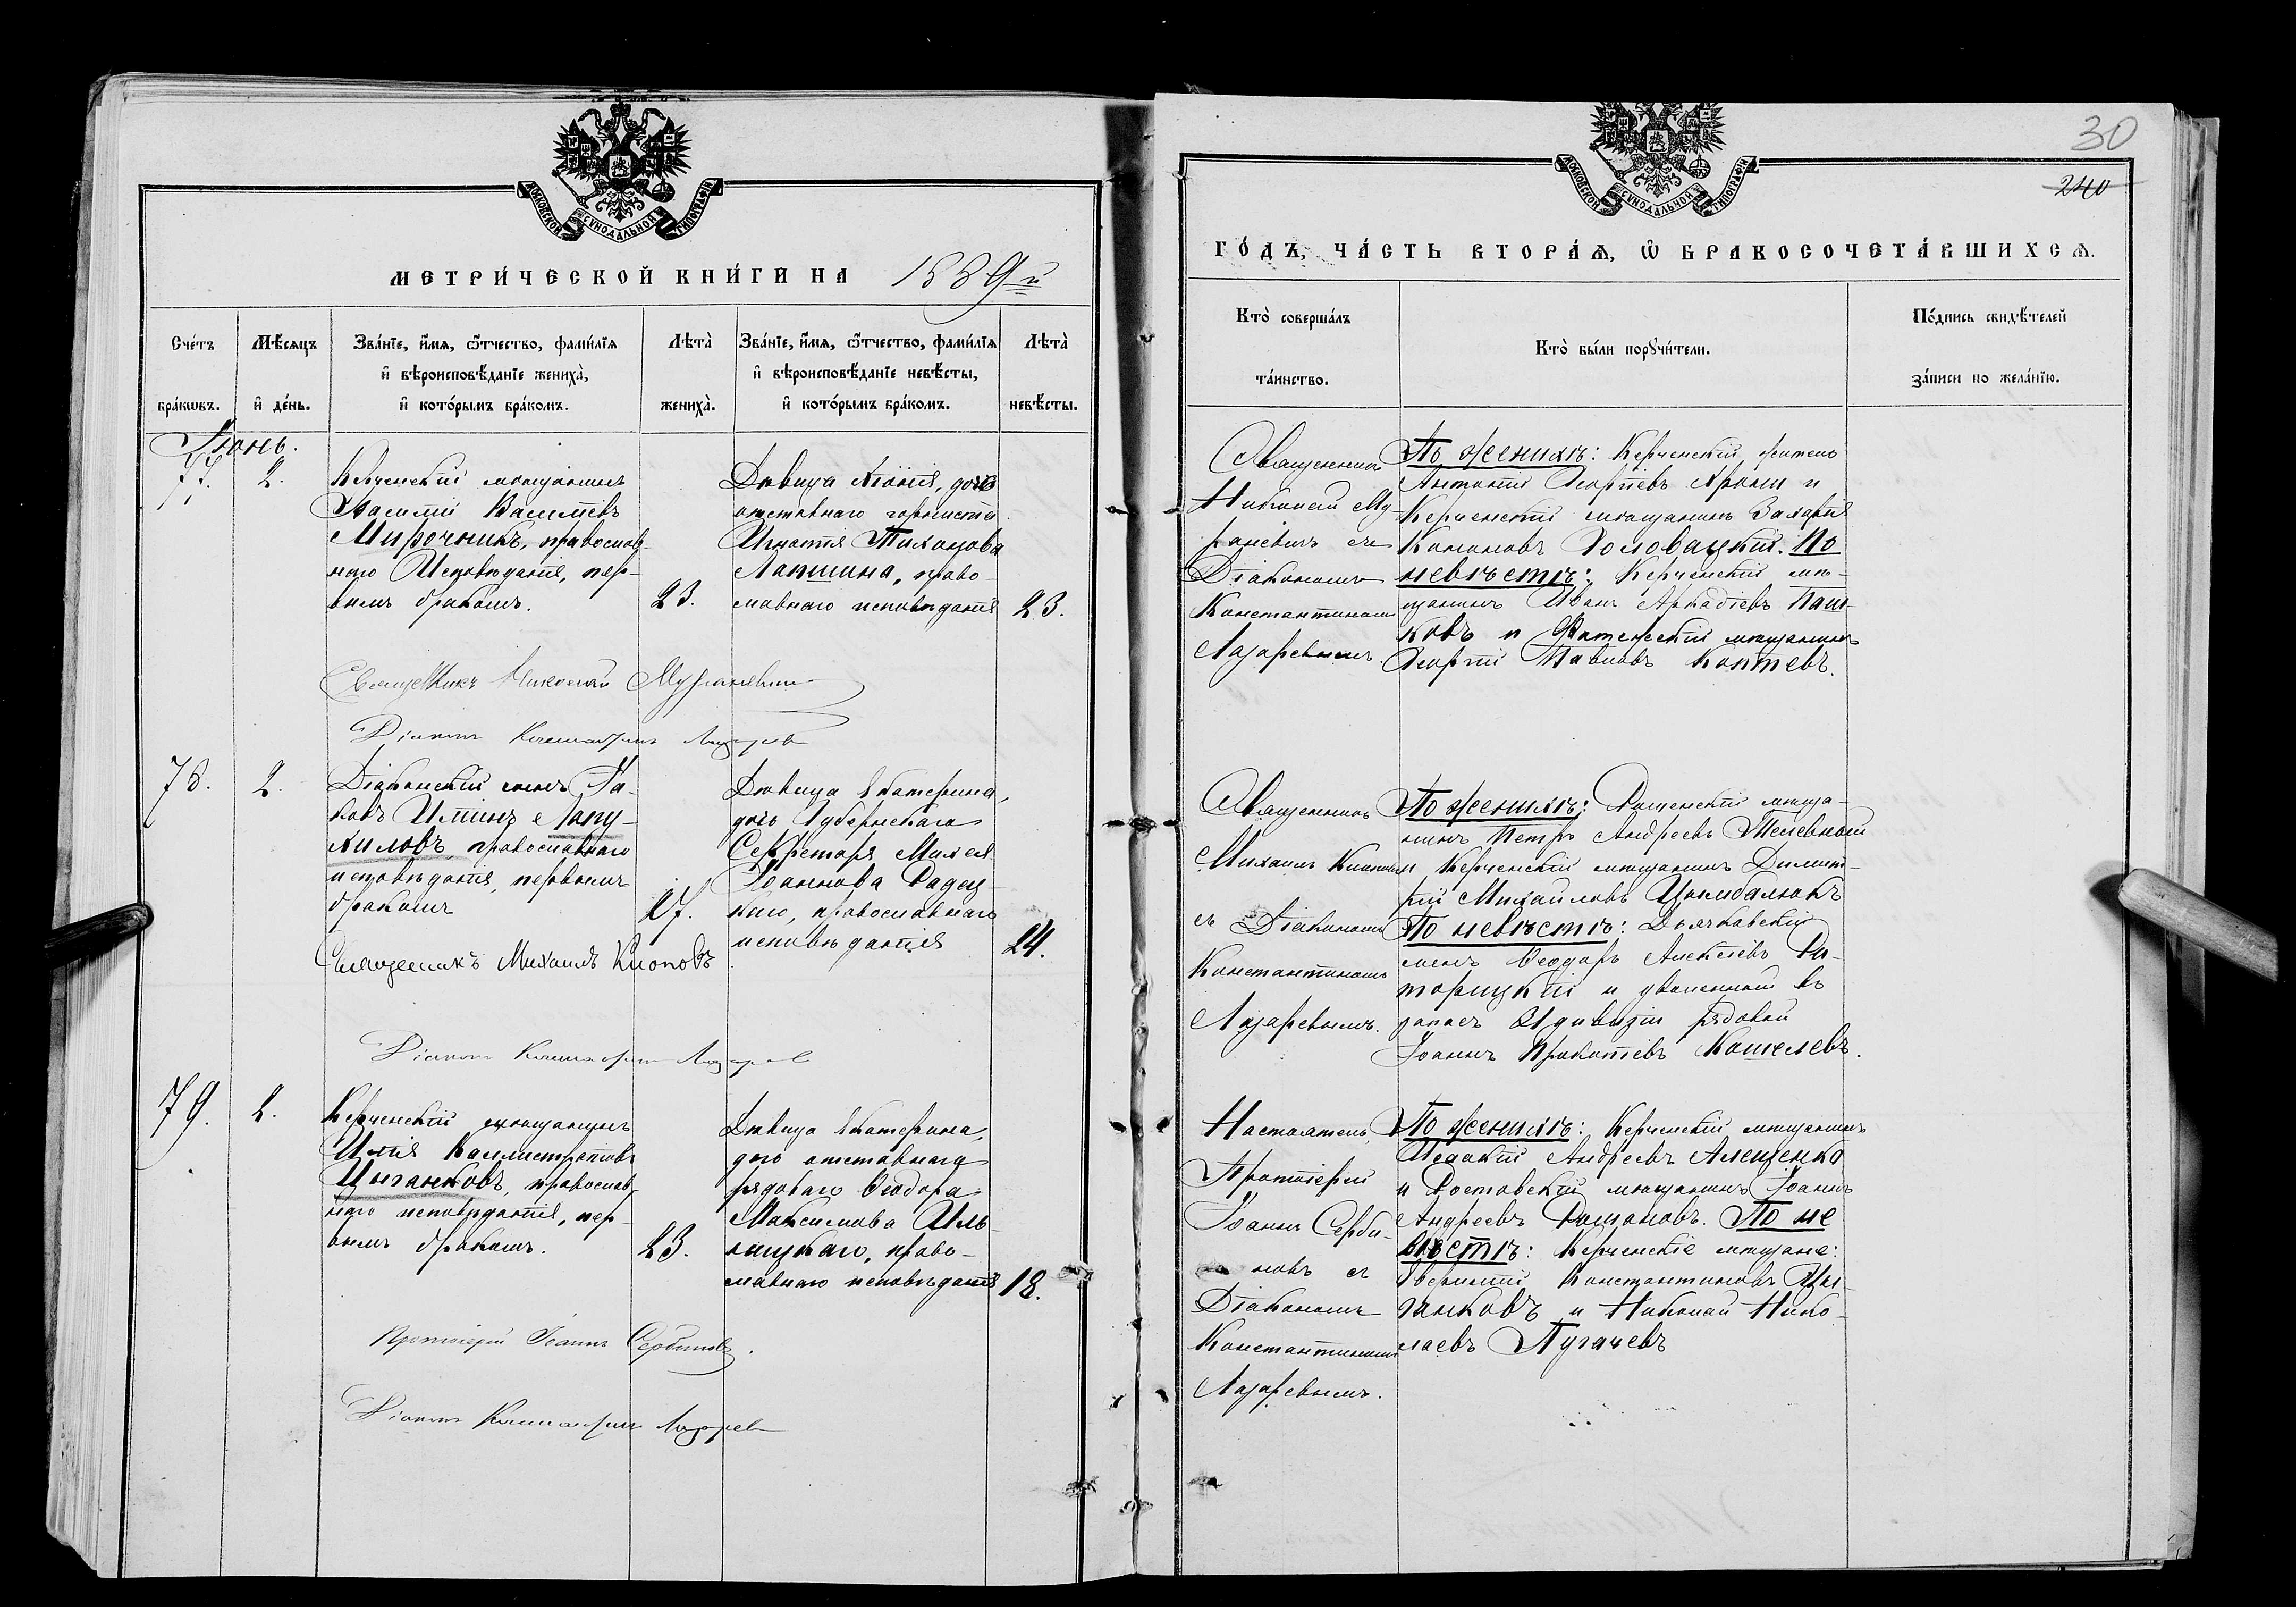 МОСКОВСКОЙ СѴНОДАЛЬНОЙ ТИПОГРАФІИ
МЕТРИ́ЧЕСКОЙ КНИ́ГИ НА 1889-й
Сче́тъ бра́кѡвъ.
Мѣ́сяцъ и҆ де́нь.
Зва́нїе, и҆́мя, ѻ҆́тчество, фами́лїя
и҆ вѣроисповѣ́данїе жениха̀,
и҆ кото́рымъ бра́комъ.
Лѣта̀ жениха̀.
Зва́нїе, и҆́мя, ѻ҆́тчество, фами́лїя
и҆ вѣроисповѣ́данїе невѣ́сты,
и҆ кото́рымъ бра́комъ.
Лѣта̀ невѣ́сты.
Іюнь.
77.
2.
Керченскій мѣщанинъ
Василій Васильевъ
Мирочникъ, православ-
наго Исповѣданія, пер-
вымъ бракомъ.
23.
Дѣвица дочь
отставнаго горниста
Игнатія Тихонова
Лапшина, право-
славнаго исповѣданія
23.
Священникъ Николай Мураневичъ
Діаконъ Константинъ Лазаревъ
78.
2.
Діаконскій сынъ Іа-
ковъ Ильинъ Лапу-
хиловъ, православнаго
исповѣданія, первымъ
бракомъ
27.
Дѣвица Екатерина,
дочь Губернскаго
Секретаря Михея
Іоаннова Радец-
каго, православнаго
исповѣданія
24.
Священникъ Михаилъ Кіоповъ
Діаконъ Константинъ Лазаревъ
79.
2.
Керченскій мѣщанинъ
Илія Каллистратовъ
Цыганковъ, православ-
наго исповѣданія, пер-
вымъ бракомъ.
23.
Дѣвица Екатерина,
дочь отставнаго
рядоваго Ѳеодора
Максимова Иль-
ницкаго, право-
славнаго исповѣданія
18.
Протоіерей Іоаннъ Сербиновъ.
Діаконъ Константинъ Лазаревъ
30
240
МОСКОВСКОЙ СѴНОДАЛЬНОЙ ТИПОГРАФІИ
ГО́ДЪ, ЧА́СТЬ ВТОРА́Ѧ, Ѡ҆ БРАКОСОЧЕТА́ВШИХСѦ.
Кто̀ соверша́лъ
та́инство.
Кто̀ бы́ли порꙋчи́тели.
По́дпись свидѣ́телей
за́писи по жела́нїю.
Священникъ
Николай Му-
раневичъ съ
Діакономъ
Константиномъ
Лазаревымъ.
По женихѣ: Керченскій житель
Антоній Георгіевъ и
Керченскій мѣщанинъ Захарія
Кононовъ Головацкій. По
невѣстѣ: Керченскій мѣ-
щанинъ Иванъ Аркадіевъ Паш-
ковъ и Фатежскій мѣщанинъ
Георгій Павловъ Коптевъ.
Священникъ
Михаилъ Кіоповъ
съ Діакономъ
Константиномъ
Лазаревымъ.
По женихѣ: мѣща-
нинъ Петръ Андреевъ
и Керченскій мѣщанинъ Димит-
рій Михайловъ Цымбалюкъ
По невѣстѣ: Дьячковскій
сынъ Ѳеодоръ Алексіевъ Ри-
торицкій и уволенный въ
запасъ 21 дивизіи рядовой
Іоаннъ Прокопіевъ Кошелевъ.
Настоятель,
Протоіерей
Іоаннъ Серби-
новъ съ
Діакономъ
Константиномъ
Лазаревымъ.
По женихѣ: Керченскій мѣщанинъ
Исаакій Андреевъ Алещенко
и Ростовскій мѣщанинъ Іоаннъ
Андреевъ Романовъ. По не
вѣстѣ: Керченскіе мѣщане:
Константиновъ Цы-
ганковъ и Николай Нико-
лаевъ Пугачевъ